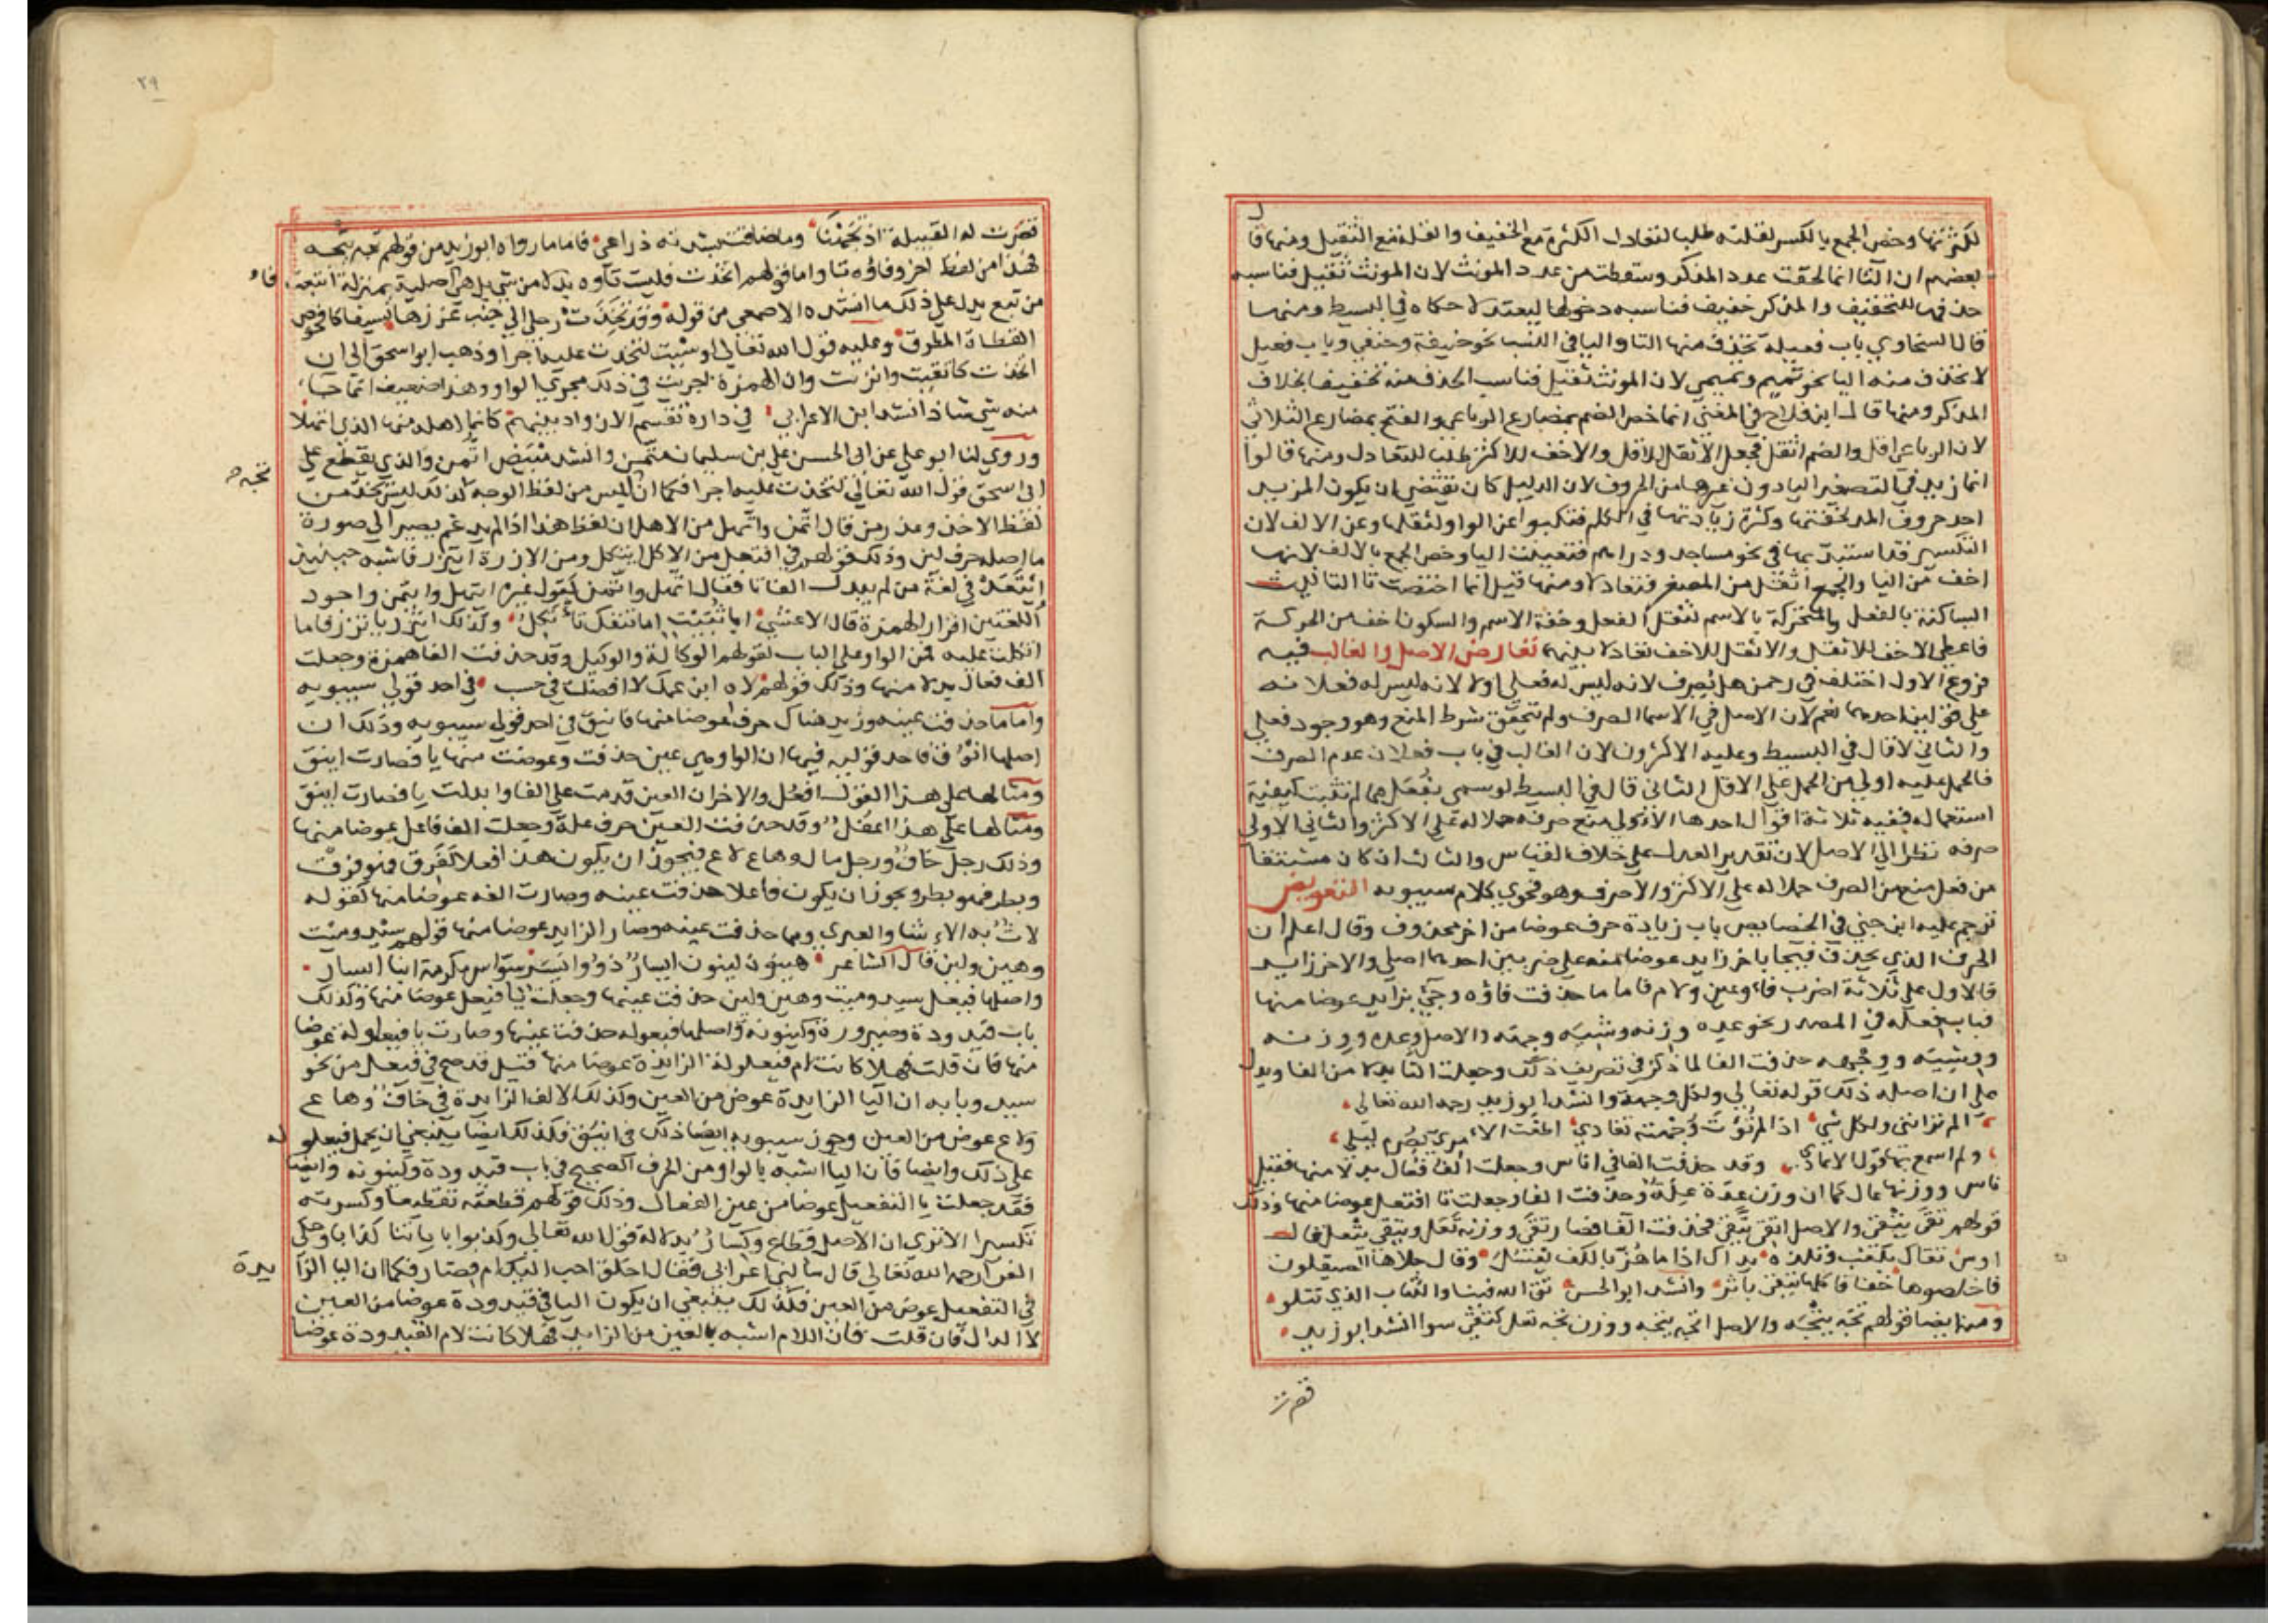 لكثرتها وخص الجمع بالكسر لقلته طلبا لتعادل الكثرة مع الخفيف والقلة مع الثقيل ومنها قال
بعضهم ان التا انما لحقت عدد المذكر وسقطت من عدد المونث لان المونث ثقيل فناسبه
حذفها للتخفيف والمذكر خفيف فناسبه دخولها ليعتدلا حكاه في البسيط ومنها
قال السخاوي باب فعيلة تحذف منها التا واليا في النسب نحو حنيفة وحنفي وباب فعيل
لا تحذف منه اليا نحو تميم وتميمي لان المونث ثقيل فناسب الحذف منه تخفيفا بخلاف
المذكر ومنها قال ابن فلاح في المغني انما خص الضم بمضارع الرباعي والفتح بمضارع الثلاثي
لان الرباعي اقل والضم اثقل فجعل الاثقل للاقل والاخف للاكثر طلبا للتعادل ومنها قالوا
انما زيد في التصغير اليا دون غيرها من الحروف لان الدليل كان يقتضي ان يكون المزيد
احد حروف المد لخفتها وكثرة زيادتها في الكلم فنكبوا عن الواو لثقلها وعن الالف لان
التكسير قد استبد بها في نحو مساجد ودراهم فتعينت اليا وخص الجمع بالالف لانها
اخف من اليا والجمع اثقل من المصغر فتعادلا ومنها قيل انما اختصت تا التانيث
الساكنة بالفعل والمتحركة بالاسم لثقل الفعل وخفة الاسم والسكون اخف من الحركة
فاعطي الاخف للاثقل والاثقل للاخف تعادلا بينهما تعارض الاصل والغالب فيه
فروع الاول اختلف في رحمن هل يصرف لانه ليس له فعلى او لا لانه ليس له فعلانه
على قولين احدهما نعم لان الاصل في الاسما الصرف ولم تتحقق شرط المنع وهو وجود فعلى
والثاني لا قال في البسيط وعليه الاكثرون لان الغالب في باب فعلان عدم الصرف
فالحمل عليه اولى من الحمل على الاقل الثاني قال في البسيط لو سمي بفعل مما لم تثبت كيفية
استعماله ففيه ثلاثة اقوال احدها الاولى منع صرفه حملا له على الاكثر والثاني الاولى
صرفه نظرا الى الاصل لان تقدير العدل على خلاف القياس والثالث ان كان مشتقا
من فعل منع من الصرف حملا له على الاكثر والا صرف وهو فحوى كلام سيبويه التعويض
ترجم عليه ابن جني في الخصايص باب زيادة حرف عوضا من اخر محذوف وقال اعلم ان
الحرف الذي يحذف فيجا باخر زايد عوضا منه على ضربين احدهما اصلي والاخر زايد
فالاول على ثلاثة اضرب فاء وعين ولام فاما ما حذفت فاؤه وجئ بزايد عوضا منها
فباب فعلة في المصدر نحو عدة وزنة وشية وجهة والاصل وعدة ووزنة
ووشية ووجهة حذفت الفا لما ذكر في تصريف ذلك وجعلت التا بدلا من الفا ويدل
على ان اصله ذلك قوله تعالى ولكل وجهة وانشد ابو زيد رحمه الله تعالى
الم تر انني ولكل شي اذا لم تؤت وجهته تعادي اطعت الامري بصرم ليلى
ولم اسمع بها قول الاعادي وقد حذفت الفا في اناس وجعلت الف فعال بدلا منها فقيل
ناس ووزنها عال كما ان وزن عدة علة وحذفت الفا وجعلت تا افتعل عوضا منها وذلك
قولهم تقى يتقي والاصل اتقى يتقي فحذفت الفا فصار تقى ووزنه تعل ويتقي يتعل قال
اوس تقاك بكعب وتلذه يداك اذا ما هز بالكف يعسل وقال جلاها الصيقلون
فاخلصوها خفافا كلها يتقي باثر وانشد ابو الحسن تق الله فينا والكتاب الذي تتلو
ومنه ايضا قولهم تجه يتجه والاصل اتجه يتجه ووزن تجه تعل كتقى سوا انشد ابو زيد
قصرت
٢٩
قصرت له القبيلة اذ تجهنا وما ضاقت بشدته ذراعي فاما ما رواه ابو زيد من قولهم تجه يتجه
فهذا من لفظ اخر وفاؤه تا واما قولهم اتخذت فليست تاوه بدلا من شي بل هي اصلية بمنزلة اتبعت
فاء
من تبع يدل على ذلك ما انشده الاصمعي من قوله وقد تخذت رجلي الى جنب غرزها نسيفا كافحوص
القطاة المطرق وعليه قول الله تعالى لو شئت لتخذت عليه اجرا وذهب ابو اسحق الى ان
اتخذت كاتقيت واتزنت وان الهمزة اجريت في ذلك مجرى الواو وهذا ضعيف انما جا
منه شي شاذ انشد ابن الاعرابي في داره تقسم الازواد بينهم كانما اهله منها الذي اتهلا
وروى لنا ابو علي عن ابي الحسن علي بن سليمان متمن وانشد متبيض اتمن والذي يقطع على
تجه
ابي اسحق قول الله تعالى لتخذت عليه اجرا فكما ان تجه ليس من لفظ الوجه كذلك ليس تخذ من
لفظ الاخذ وعذر من قال اتمن واتهل من الاهل ان لفظ هذا اذا لم يدغم يصير الى صورة
ما اصله حرف لين وذلك قولهم في افتعل من الاكل ايتكل ومن الازرة ايتزر فاشبه حينئذ
ايتعد في لغة من لم يبدل الفا تا فقال اتهل واتمن كقول غيره ايتهل وايتمن واجود
اللغتين اقرار الهمزة قال الاعشى ابا ثبيت اما تنفك تأتكل وكذلك ايتزر ياتزر فاما
اتكلت عليه فمن الواو على الباب لقولهم الوكالة والوكيل وقد حذفت الفا همزة وجعلت
الف فعال بدلا منها وذلك قولهم لاه ابن عمك لا افضلت في حسب في احد قولي سيبويه
واما ما حذفت عينه وزيد هناك حرف عوضا منها فاينق في احد قولي سيبويه وذلك ان
اصلها انوق فاحد قوليه فيها ان الواو هي عين حذفت وعوضت منها يا فصارت اينق
ومثالها على هذا القول ايفل والاخر ان العين قدمت على الفا وابدلت يا فصارت اينق
ومثالها على هذا اعفل وقد حذفت العين حرف علة وجعلت الف فاعل عوضا منها
وذلك رجل خاف ورجل مال وهاع لاع فيجوز ان يكون هذا فعلا كفرق فهو فرق
وبطر فهو بطر ويجوز ان يكون فاعلا حذفت عينه وصارت الفه عوضا منها كقوله
لاث به الاشا والعبري ومما حذفت عينه وصار الزايد عوضا منها قولهم سيد وميت
وهين ولين قال الشاعر هينون لينون ايسار ذوو يسر سواس مكرمة ابنا ايسار
واصلها فيعل سيد وميت وهين ولين حذفت عينها وجعلت يا فيعل عوضا منها وكذلك
باب قيدودة وصيرورة وكينونة واصلها فيعولة حذفت عينها وصارت يا فيعلولة عوضا
منها فان قلت فهلا كانت لام فيعلولة الزايدة عوضا منها قيل قد صح في فيعل من نحو
سيد وبابه ان اليا الزايدة عوض من العين وكذلك الالف الزايدة في خاف وهاع
ولاع عوض من العين وجوز سيبويه ايضا ذلك في اينق فكذلك ايضا ينبغي ان يحمل فيعلو
لة
على ذلك وايضا فان اليا اشبه بالواو من الحرف الصحيح في باب قيدودة وكينونة وايضا
فقد جعلت يا التفعيل عوضا من عين الفعال وذلك قولهم قطعته تقطيعا وكسرته
تكسيرا الا ترى ان الاصل قطاع وكسار بدلالة قول الله تعالى وكذبوا باياتنا كذابا وحكى
الفرا رحمه الله تعالى قال سالني اعرابي فقال احلق احب اليك ام قصار فكما ان اليا الزا
يدة
في التفعيل عوض من العين فكذلك ينبغي ان يكون اليا في قيدودة عوضا من العين
لا الدال فان قلت فان اللام اشبه بالعين من الزايد فهلا كانت لام القيدودة عوضا